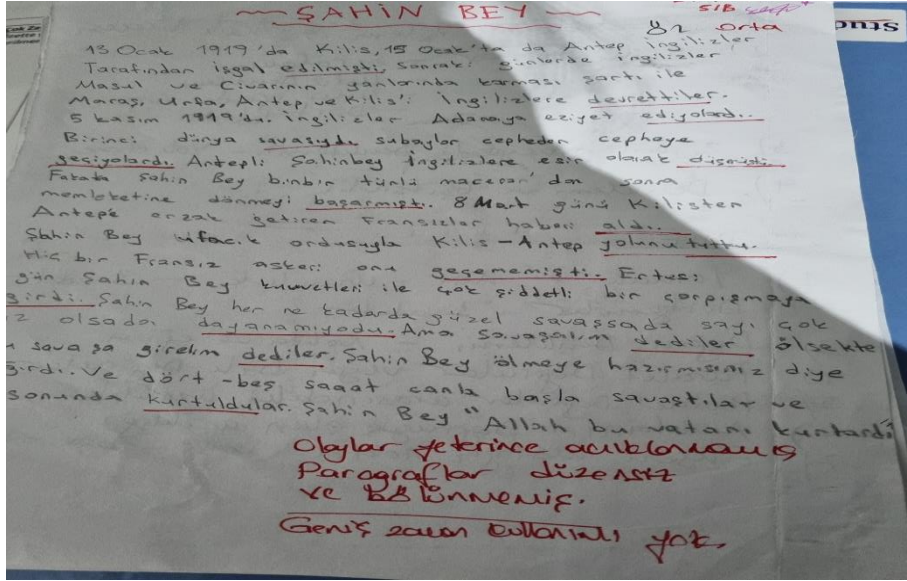 ŞAHİN BEY
5/B
Orta
13 Ocak 1919'da Kilis, 15 Ocak'ta da Antep İngilizler
Tarafından işgal edilmişti. Sonraki günlerde ingilizler
Masul ve Civarının yanlarında karması şartı ile
Maraş, Urfa, Antep ve Kilis'i İngilizlere devrettiler.
5 kasım 1919'du. ingilizler Adanaya eziyet ediyolardı.
Birinci dünya savaşıydı subaylar cepheden cepheye
geçiyolardı. Antepli Şahinbey İngilizlere esir olarak düşmüştü
Fakata Şahin Bey binbir türlü macera'dan sonra
memleketine dönmeyi başarmıştı. 8 Mart günü Kilisten
Antepe erzak getiren Fransızlar haberi aldı.
Şahin Bey ufacık ordusuyla Kilis-Antep yolunu tuttu.
Hiç bir Fransız askeri onu geçememişti. Ertesi
gün Şahin Bey kuvvetleri ile çok şiddetli bir çarpışmaya
girdi. Şahin Bey her ne kadarda güzel savaşsada sayı çok
z olsada dayanamıyodu. Ama savaşalım dediler ölsekte
savaşa girelim dediler. Şahin Bey ölmeye hazırmısınız diye
girdi. Ve dört-beş saaat canla başla savaştılar ve
sonunda kurtuldular. Şahin Bey "Allah bu vatanı kurtardı"
Olaylar yeterince açıklanmamış
Paragraflar düzensiz
ve bölünmemiş.
Geniş zaman kullanımı yok.